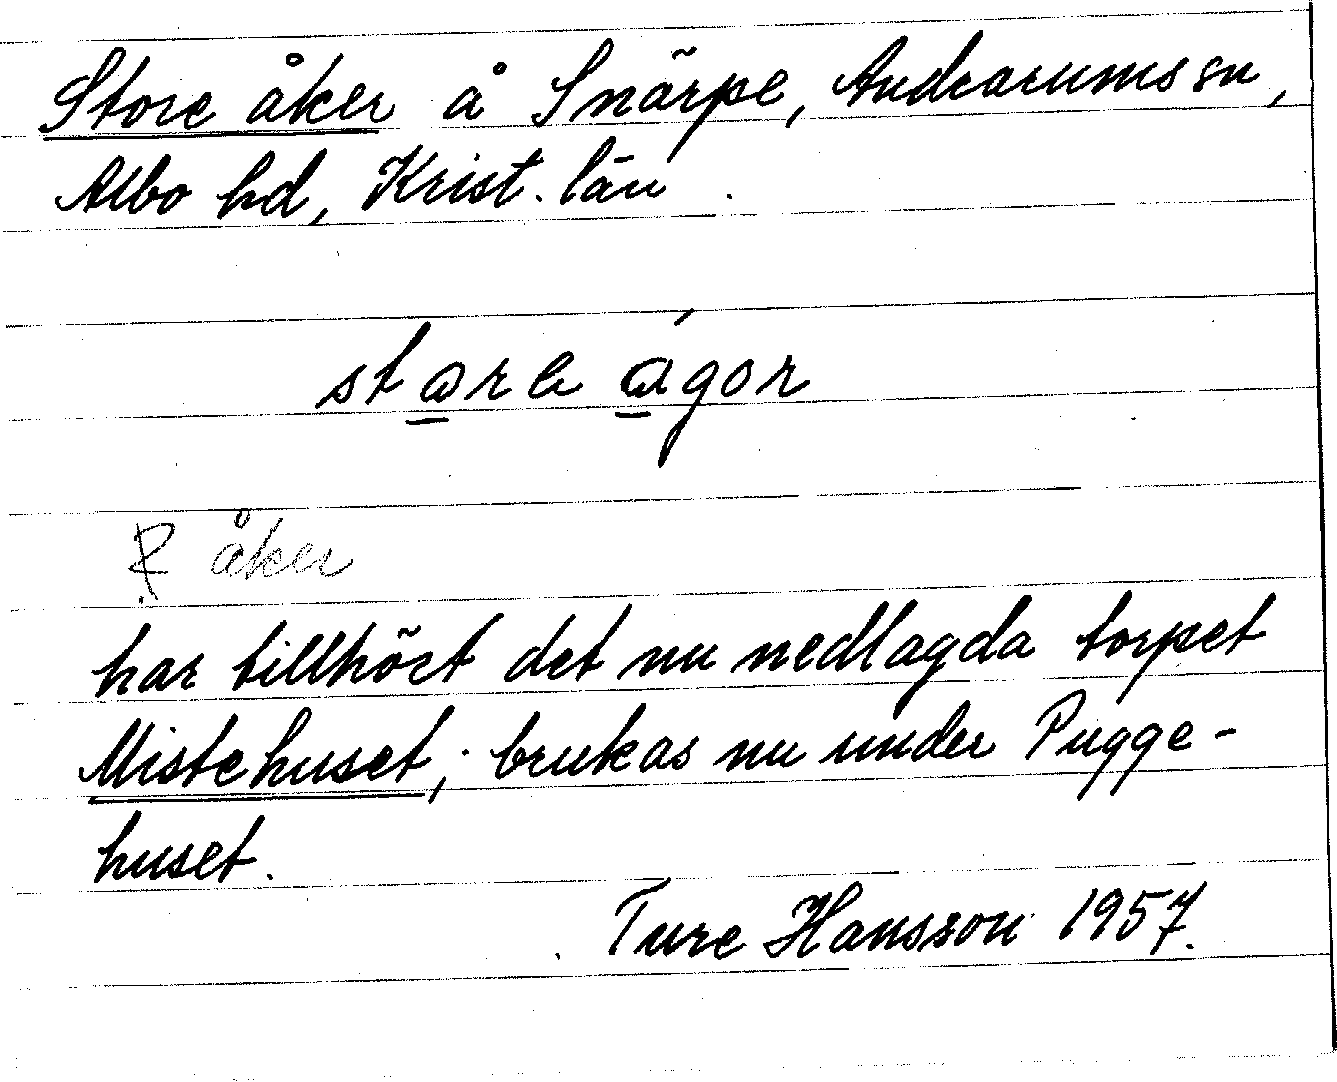 Store åker å Snärpe, Andrarums sn,
Albo hd, Krist. län.
åker
har tillhört det nu nedlagda torpet
Mistehuset; brukas nu under Pugge-
huset.
Ture Hansson 1957.